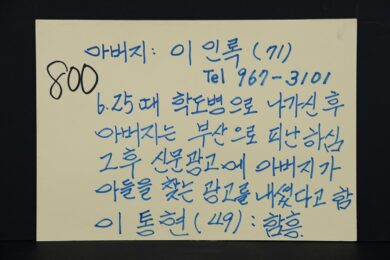 800
아버지: 이 인록 (71)
Tel 967-3101
6.25때 학도병으로 나가신 후
아버지는 부산으로 피난하심
그후 신문광고에 아버지가
아들을 찾는 광고를 내셨다고 함
이 통현 (49): 함흥.